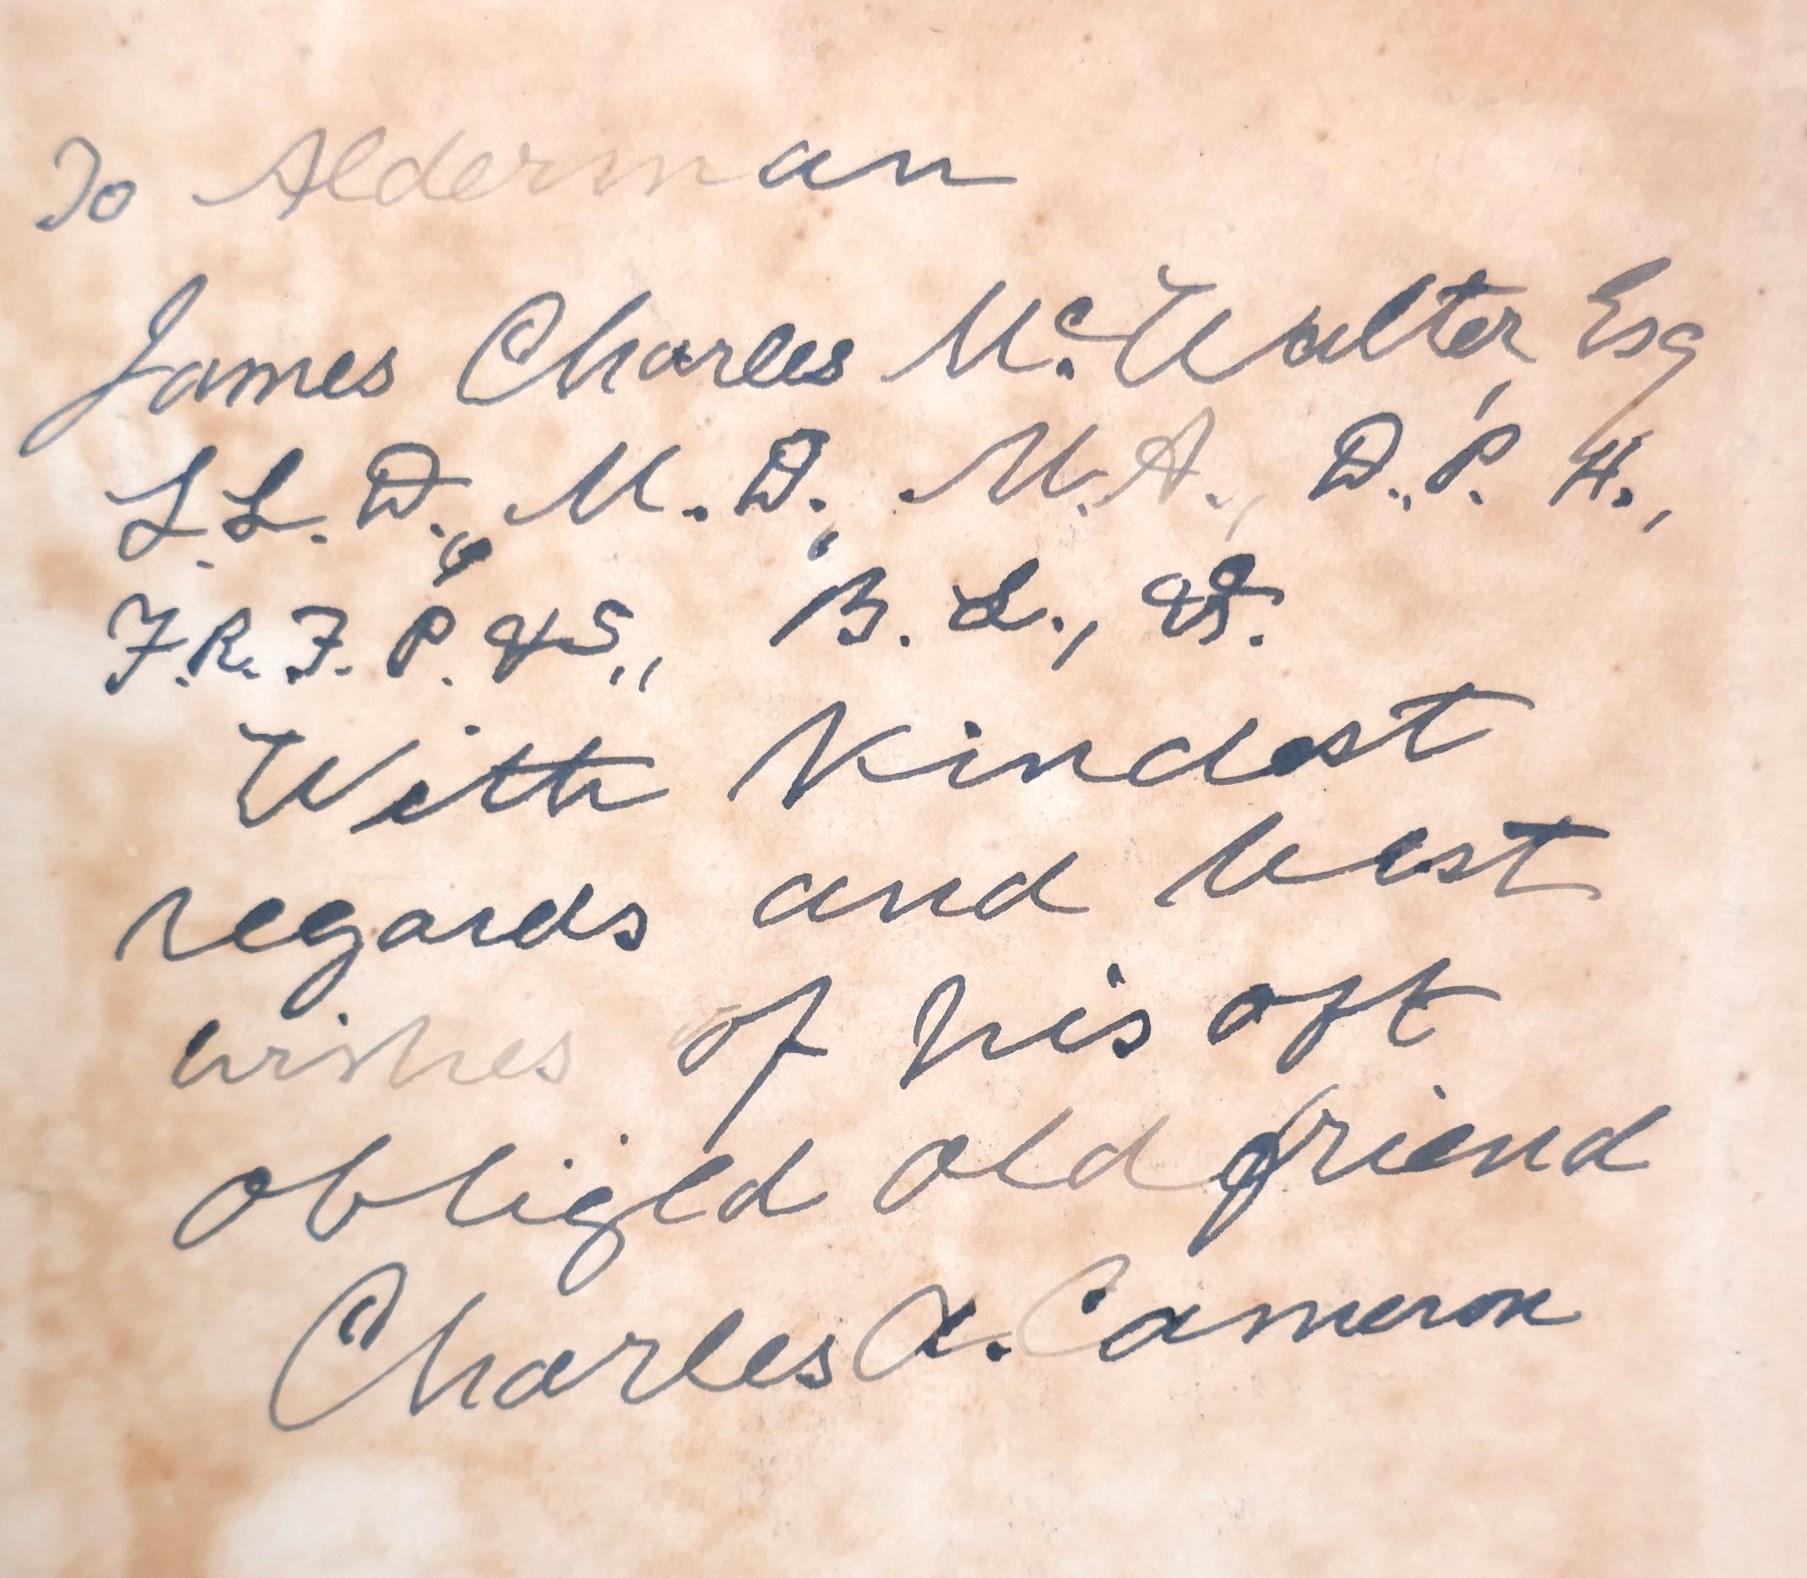 To Alderman
James Charles McWalter, Esq
L.L.D., M.D., M.A., D.P.H.,
F.R.F.P.&S., B.L., &c.
With Kindest
regards and best
wishes of his oft
obliged old friend
Charles A. Cameron